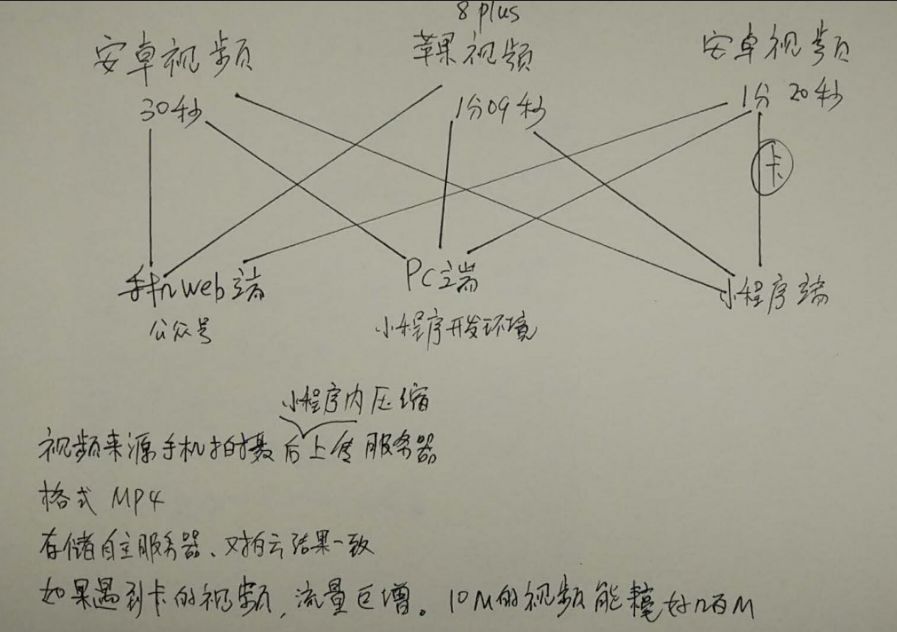 8 plus
安卓视频 苹果视频 安卓视频
30秒 1分09秒 1分20秒
卡
手机web端 PC端 小程序端
公众号 小程序开发环境
小程序内压缩
视频来源手机拍摄后上传服务器
格式 MP4
存储自主服务器、又拍云结果一致
如果遇到卡的视频,流量巨增。10M的视频能耗好几百M